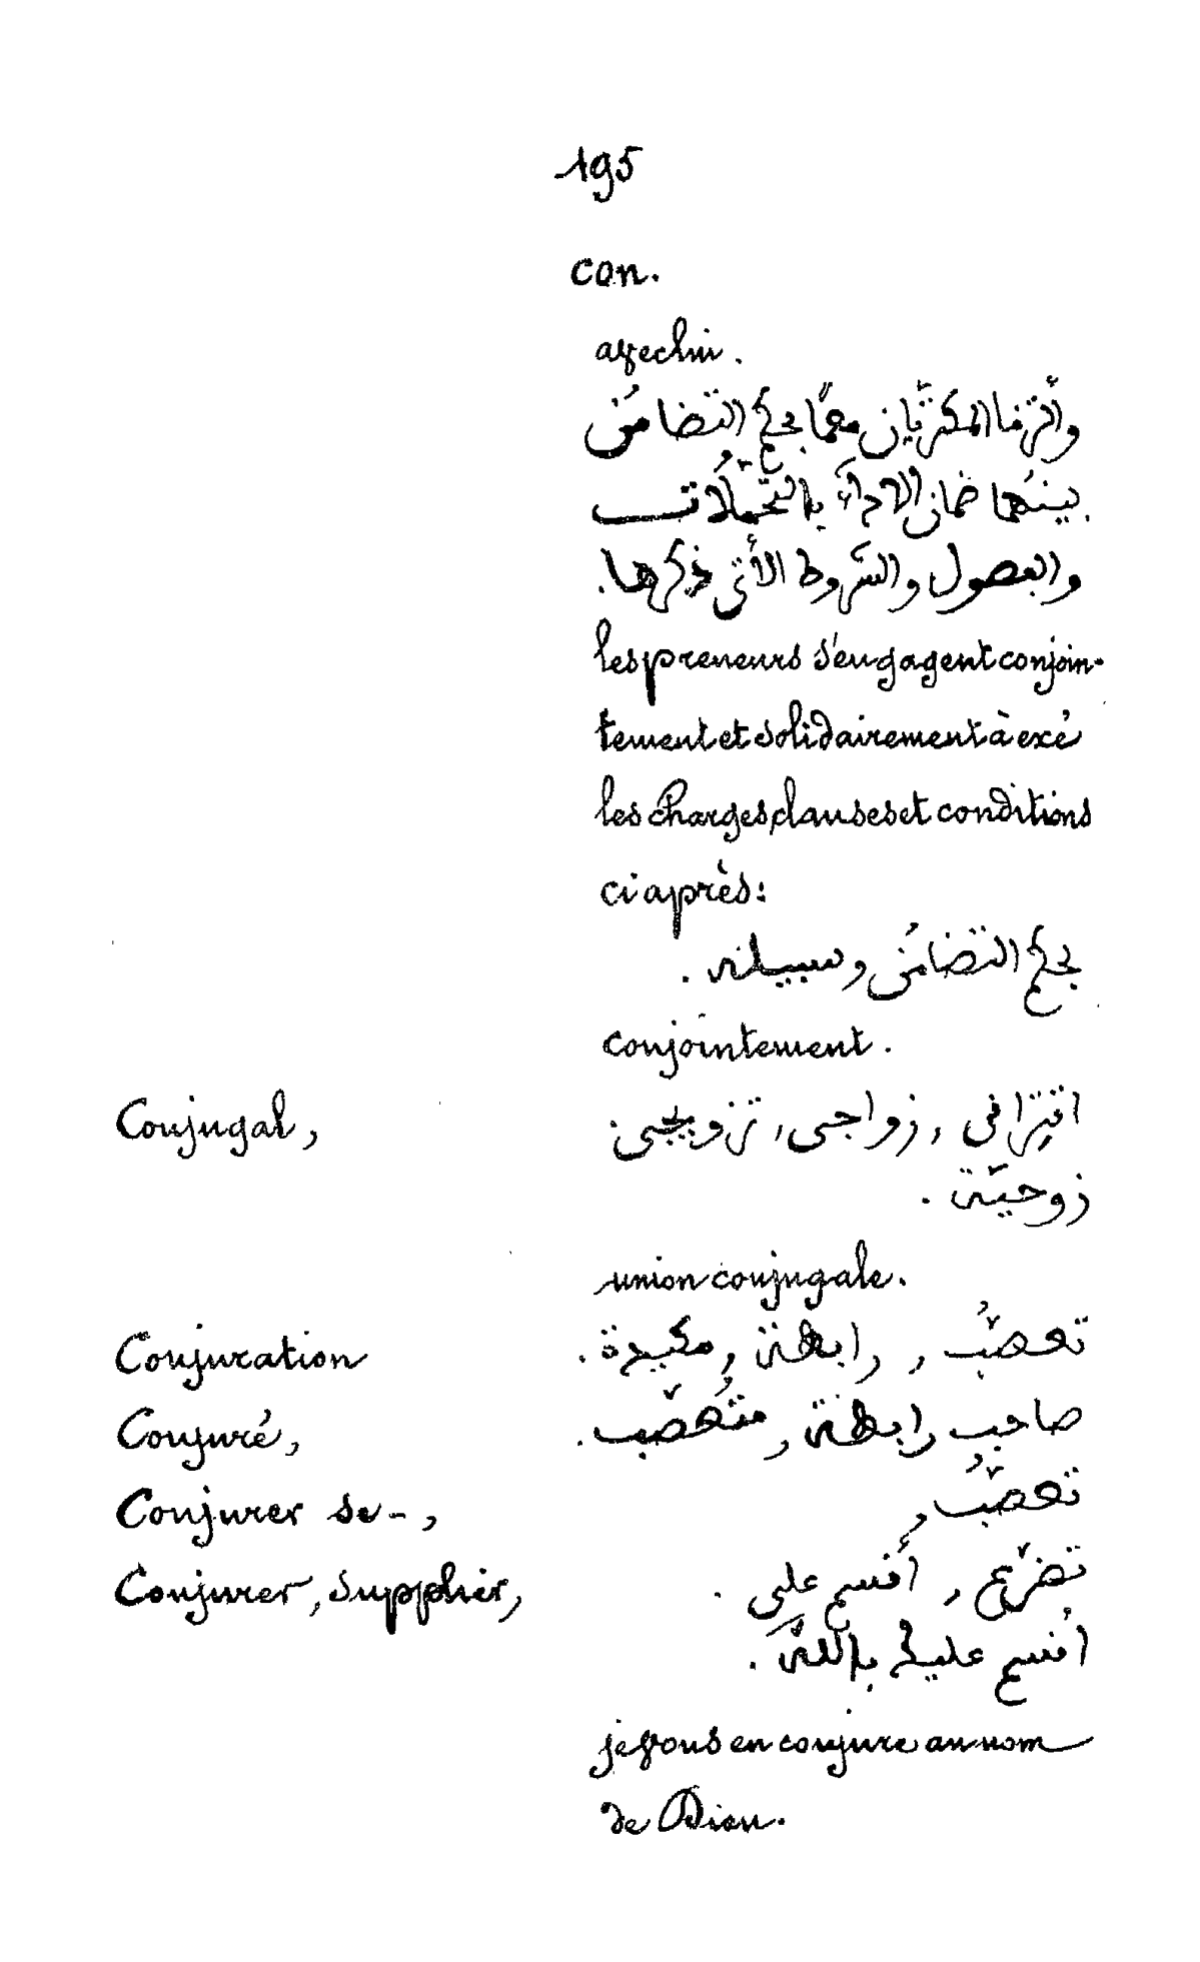 195
con.
avec lui.
والتزما المكتريان معًا بحكم التضامُن
بينهما ضمان الاداء بالتحمّلات
والفصول والشروط الأتي ذكرها.
les preneurs s'engagent conjoin-
tement et solidairement à exé
les charges, clauses et conditions
ci après:
بحكم التضامُن وسبيله.
conjointement.
Conjugal, اقتِرَاني، زواجي، تزويجي.
زوجيّة.
union conjugale.
Conjuration تعصّبُ، رابطة، مكيدة.
Conjuré, صاحب رابطة، متُعصّب.
Conjurer se-, تعصّبُ،
Conjurer, supplier, تضرّع، أقسم على.
اقسم عليك باللّه.
je vous en conjure au nom
de Dieu.